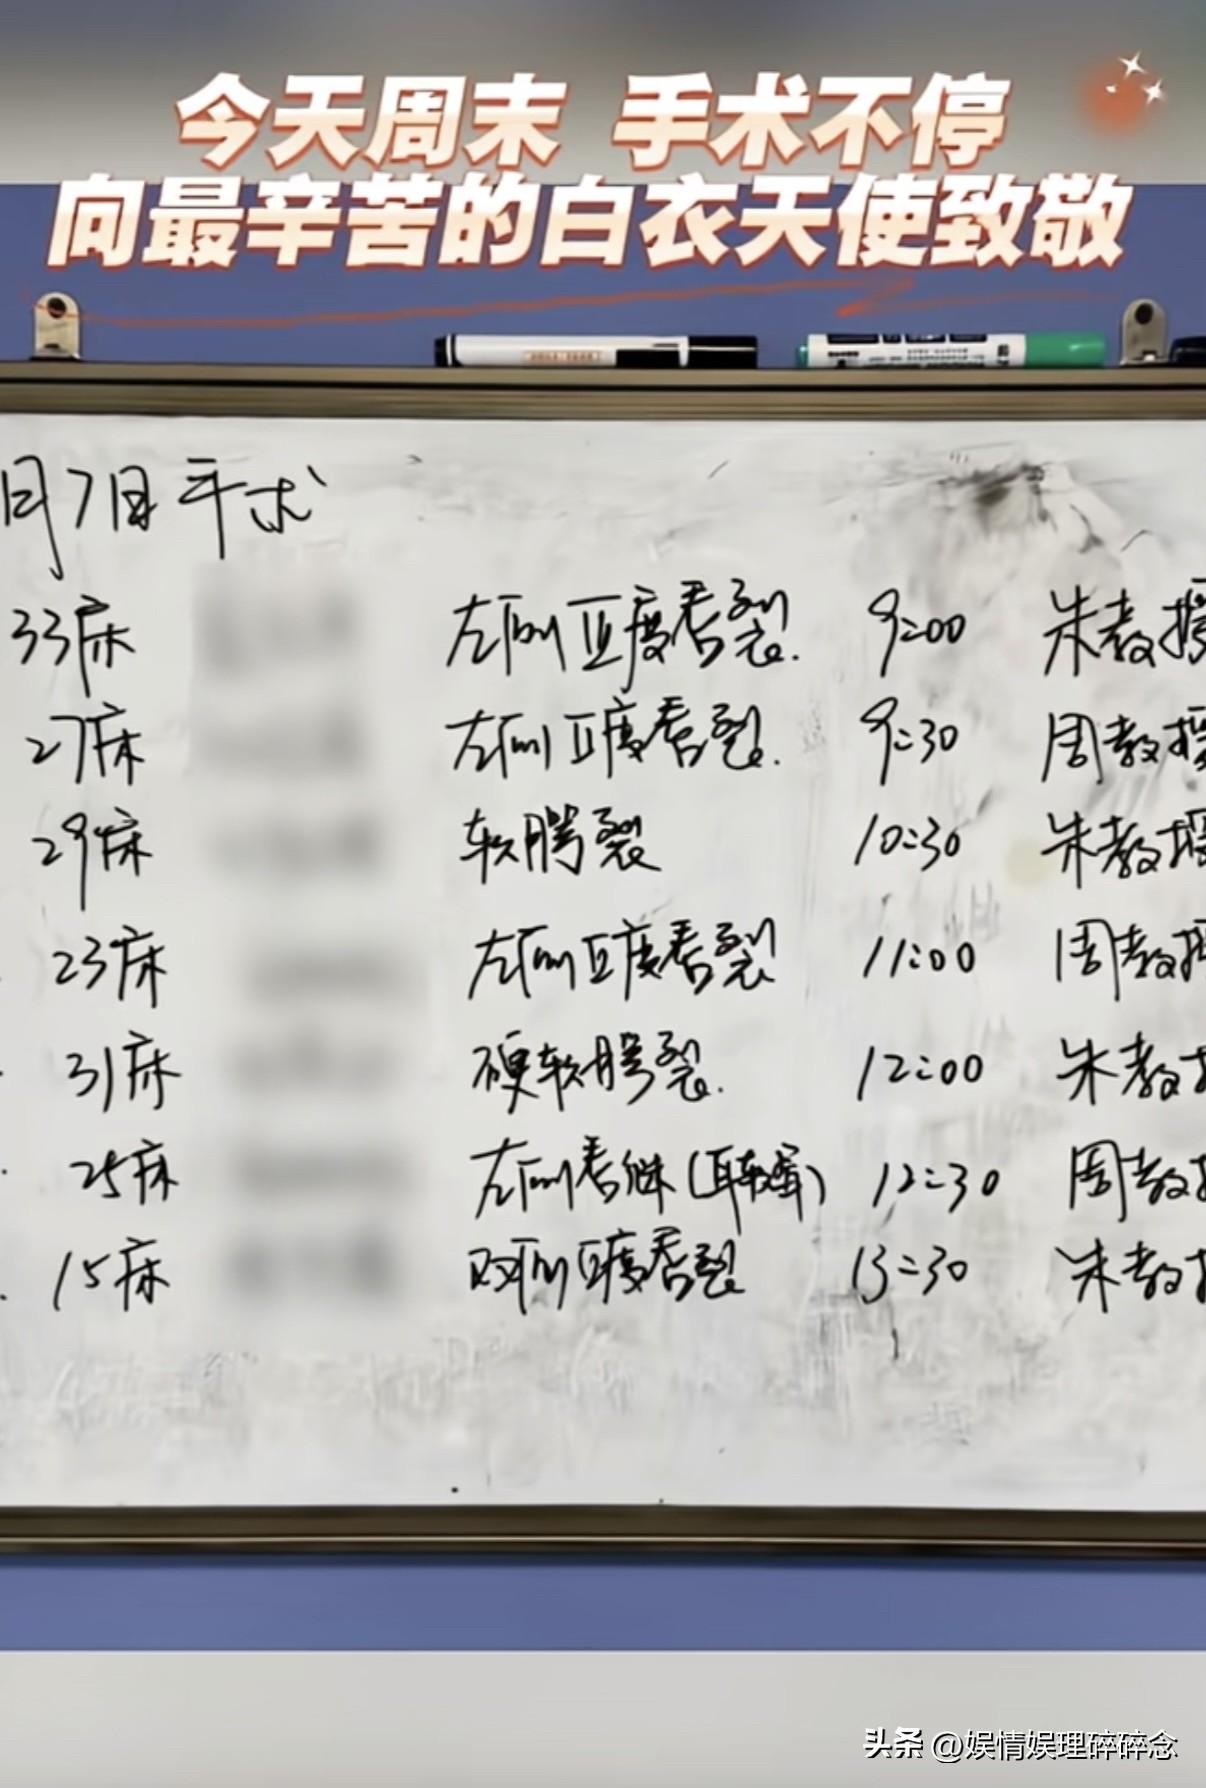 今天周末 手术不停
向最辛苦的白衣天使致敬
月7日手术
33床 左侧Ⅲ度唇裂. 9:00 朱教授
27床 左侧Ⅱ度唇裂. 9:30 周教授
29床 软腭裂 10:30 朱教授
23床 左侧Ⅱ度唇裂 11:00 周教授
31床 硬软腭裂. 12:00 朱教授
25床 左侧唇继(耳软骨) 12:30 周教授
15床 双侧Ⅱ度唇裂 13:30 朱教授
头条 @娱情娱理碎碎念